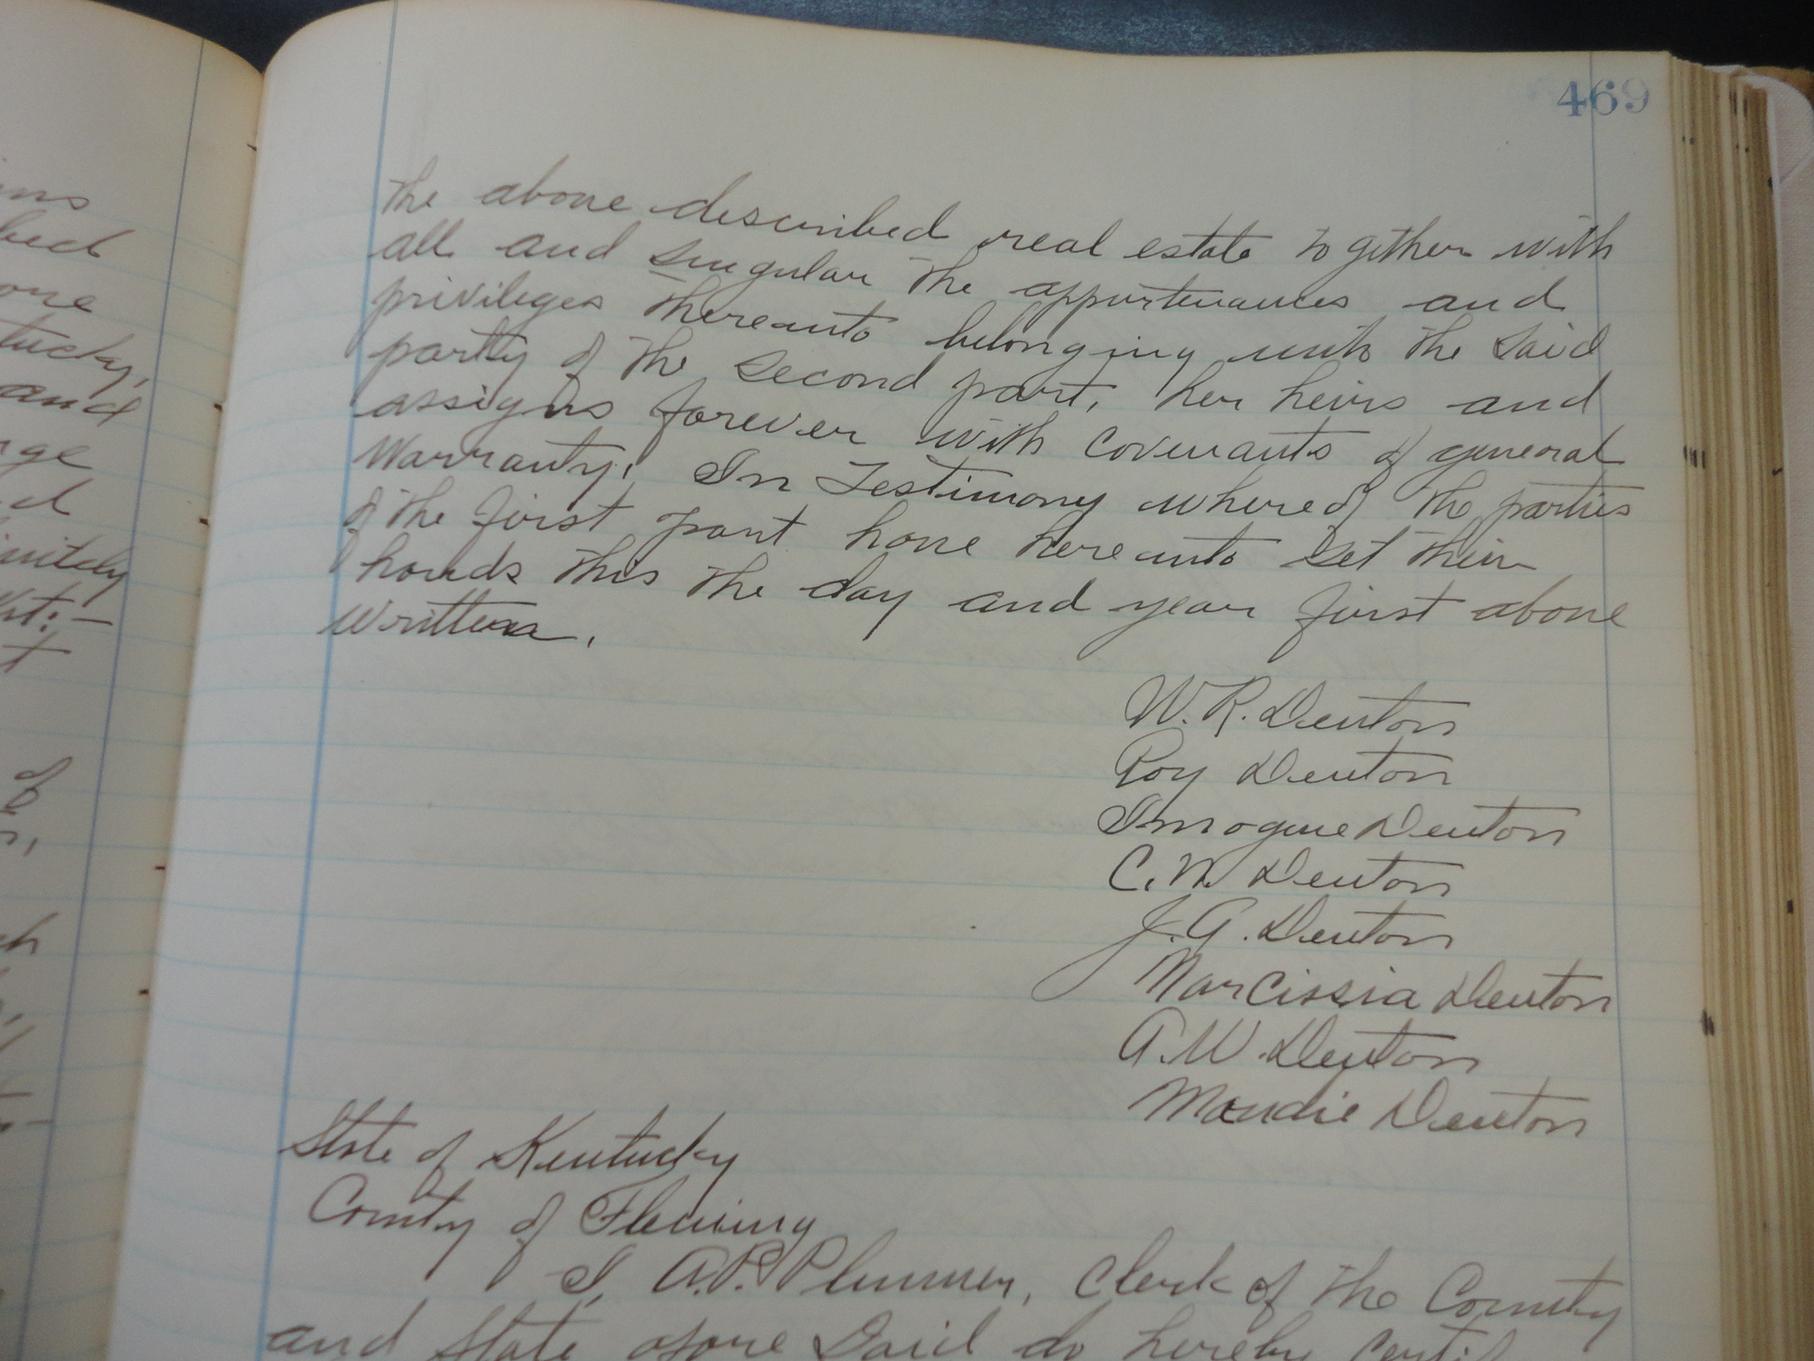 469
the above described real estate together with
all and singular the appurtenances and
privileges thereunto belonging unto the said
party of the second part, her heirs and
assigns forever with covenants of general
Warranty. In Testimony whereof the parties
of the first part have hereunto set their
hands this the day and year first above
written.
W. R. Denton
Roy Denton
Imogine Denton
C. N. Denton
J. A. Denton
Narcissia Denton
A. W. Denton
Maudie Denton
State of Kentucky
County of Fleming
I, A. P. Plummer, Clerk of the County
and State afore Said do hereby